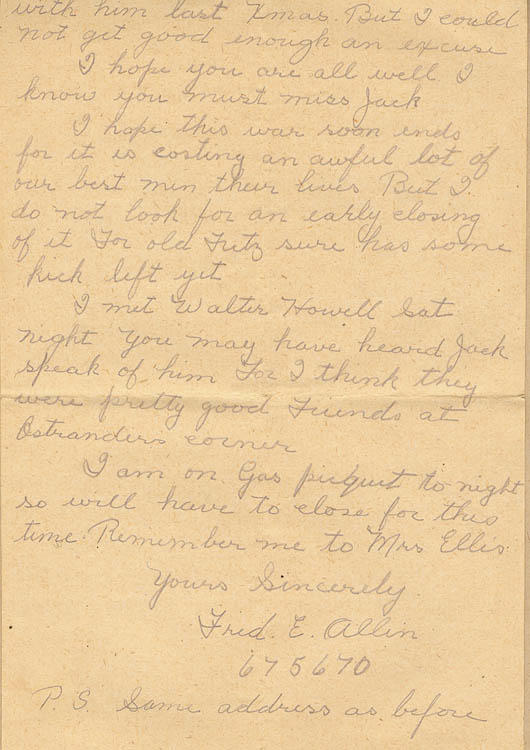 with him last Xmas. But I could
not get good enough an excuse
I hope you are all well I
know you must miss Jack
I hope this war soon ends
for it is costing an awful lot of
our best men their lives But I
do not look for an early closing
of it For old Fritz sure has some
kick left yet
I met Walter Howell Sat
night You may have heard Jack
speak of him For I think they
were pretty good Friends at
Ostranders corner
I am on Gas picquet to night
so will have to close for this
time. Remember me to Mrs Ellis
Yours Sincerely.
Fred. E. Allin
675670
P.S. Same address as before